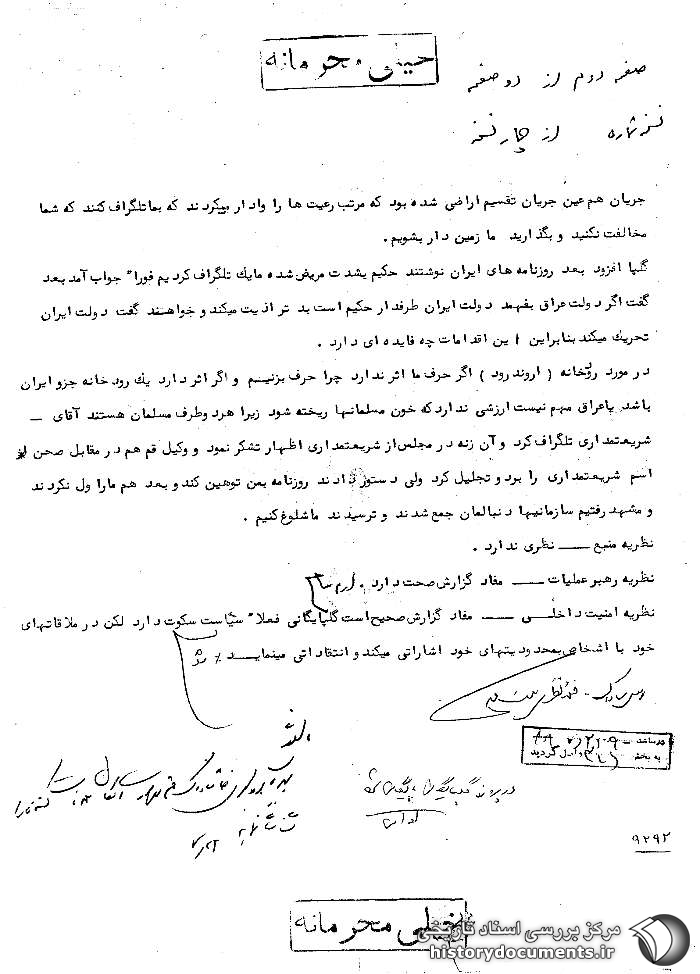 خیلی محرمانه
صفحه دوم از دو صفحه
نسخه شماره از چهار نسخه
جریان هم عین جریان تقسیم اراضی شده بود که مرتب رعیت ها را وادار میکردند که بما تلگراف کنند که شما
مخالفت نکنید و بگذارید ما زمین دار بشویم .
گلپا افزود بعد روزنامه های ایران نوشتند حکیم بشدت مریض شده ما یك تلگراف کردیم فورا" جواب آمد بعد
گفت اگر دولت عراق بفهمد دولت ایران طرفدار حکیم است بد تر اذیت میکند و خواهند گفت دولت ایران
تحریك میکند بنابراین این اقدامات چه فایده ای دارد .
در مورد روخانه ( اروند رود ) اگر حرف ما اثر ندارد چرا حرف بزنیم و اگر اثر دارد یك رودخانه جزو ایران
باشد یا عراق مهم نیست ارزشی ندارد که خون مسلمانها ریخته شود زیرا هر دو طرف مسلمان هستند آقای ـ
شریعتمداری تلگراف کرد و آن زنه در مجلس از شریعتمداری اظهار تشکر نمود و وکیل قم هم در مقابل صحن
اسم شریعتمداری را برد و تجلیل کرد ولی دستور دادند روزنامه بمن توهین کند و بعد هم ما را ول نکردند
و مشهد رفتیم سازمانیها دنبالمان جمع شدند و ترسیدند ما شلوغ کنیم .
نظریه منبع ــ نظری ندارد .
نظریه رهبر عملیات ــ مفاد گزارش صحت دارد .
نظریه امنیت داخلی ــ مفاد گزارش صحیح است گلپایگانی فعلا" سیاست سکوت دارد لکن در ملاقاتهای
خود با اشخاص بمحدودیتهای خود اشاراتی میکند و انتقاداتی مینماید
در ساعت
به بخش ۳۱۶ واصل گردید
در پرونده گلپایگانی بایگانی شود
۹۲۹۲
خیلی محرمانه
مرکز بررسی اسناد تاریخی
historydocuments.ir